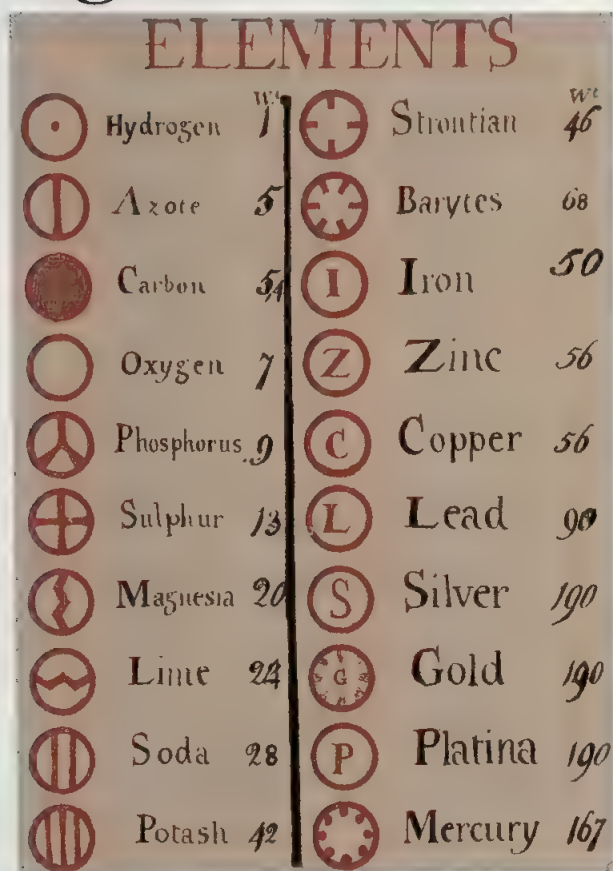 ELEMENTS
Wt
Hydrogen 1
Azote 5
Carbon 5,4
Oxygen 7
Phosphorus 9
Sulphur 13
Magnesia 20
Lime 24
Soda 28
Potash 42
Wt
Strontian 46
Barytes 68
I Iron 50
Z Zinc 56
C Copper 56
L Lead 90
S Silver 190
G Gold 190
P Platina 190
Mercury 167